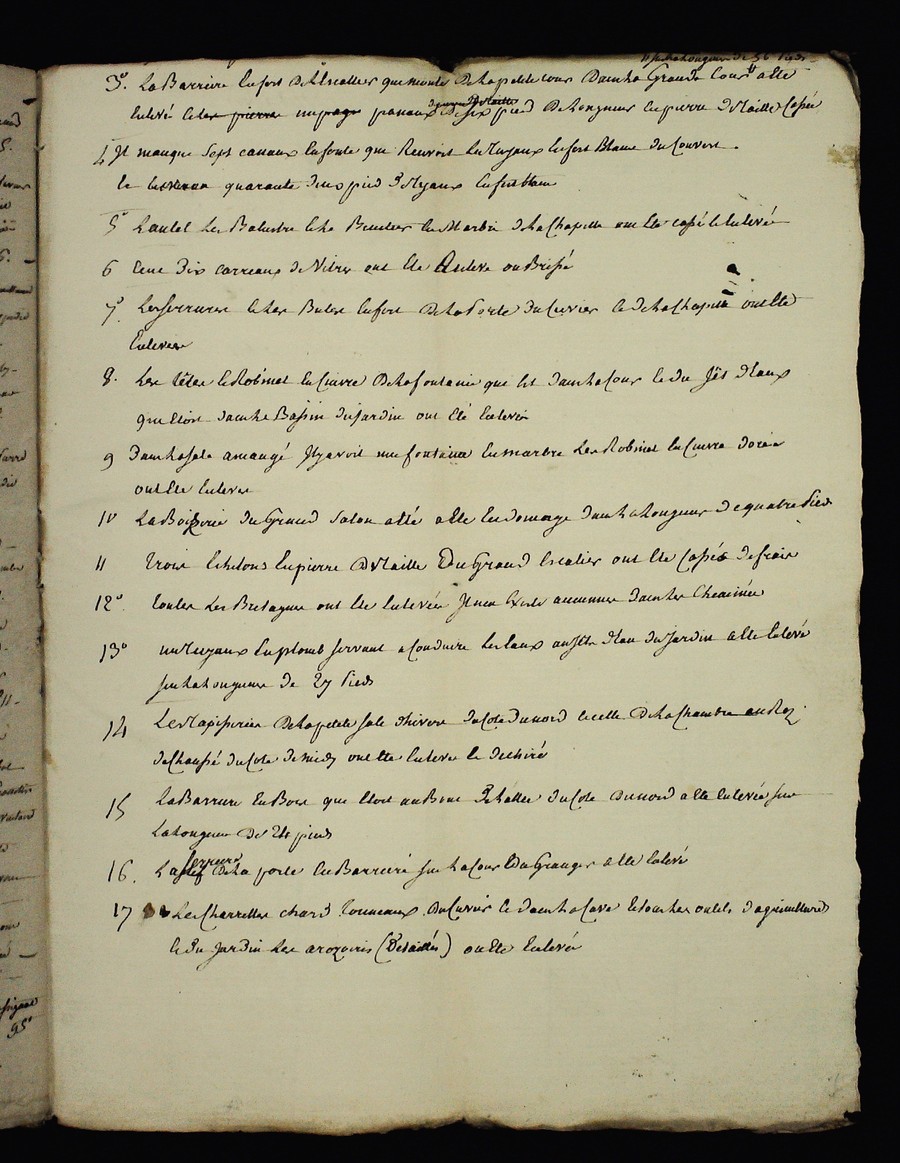 sur la longueur de 36 pieds
3° La Barriere En fert de L'Escallier qui monte de la petite cour Dans la Grande Cour a ete
Enlevé et les pierres un panaux de six pied de longueur en pierre de taille Cassé
4 Il manque sept canaux en fonte qui Reçevoit Les Tuyaux En fert Blanc du Couvert
et quarante deux pied de Tuyaux En fert blanc
5° L'autel Les Balustre et Le Benitier En Marbre de La Chapelle ont Ete cassé et Enlevé
6 Cent Dix carreaux de Vitres ont Ete Enlevé ou Brisé
7° Les serrures et Les En fert de La Porte du Cuvier et de La Chapelle ont Ete
Enlevée
8. Les têtes et Robinet En Cuivre De La fontaine qui Est dans La Cour et du Jêt d'Eaux
qui Etoit dans Le Bassin du Jardin ont Eté Enlevée
9 Dans La Sale a mangé Il y avoit une fontaine En marbre Les Robinet En Cuivre dorée
ont Ete Enlevée
10 La Boisserie du Grand Salon a été En Domagé dans La Longueur de quatre Pied
11 Trois Echelons En pierre de Taille Du Grand Escalier ont Ete Cassés
12° Toutes Les Bretagnes ont Ete Enlevée Il n'en Existe aucunnes dans Les Cheminée
13° un Tuyaux En plomb servant a Conduire Les Eaux au Jêt d'Eau du Jardin a Ete Enlevé
sur La Longueur de 27 Pieds
14 Les Tapisserie De La petite Sale d'hivers du Coté du nord et celle De La Chambre au Rez
de Chaussé du Coté de midy ont Ete Enlevé et dechiré
15 La Barriere En Bois qui Etoit au Bout de L'allée du Coté du nord a Ete Enlevée sur
La Longueur de 24 pieds
16. La serrure de La porte En Barrieré sur La Cour Du Granger a Ete Enlevé
17 Les Charrettes chard Tonneaux du Cuvier et dans La Cave Et outils d'agriculture
et du Jardin Les arozoirs (Détaillés) ont Ete Enlevée